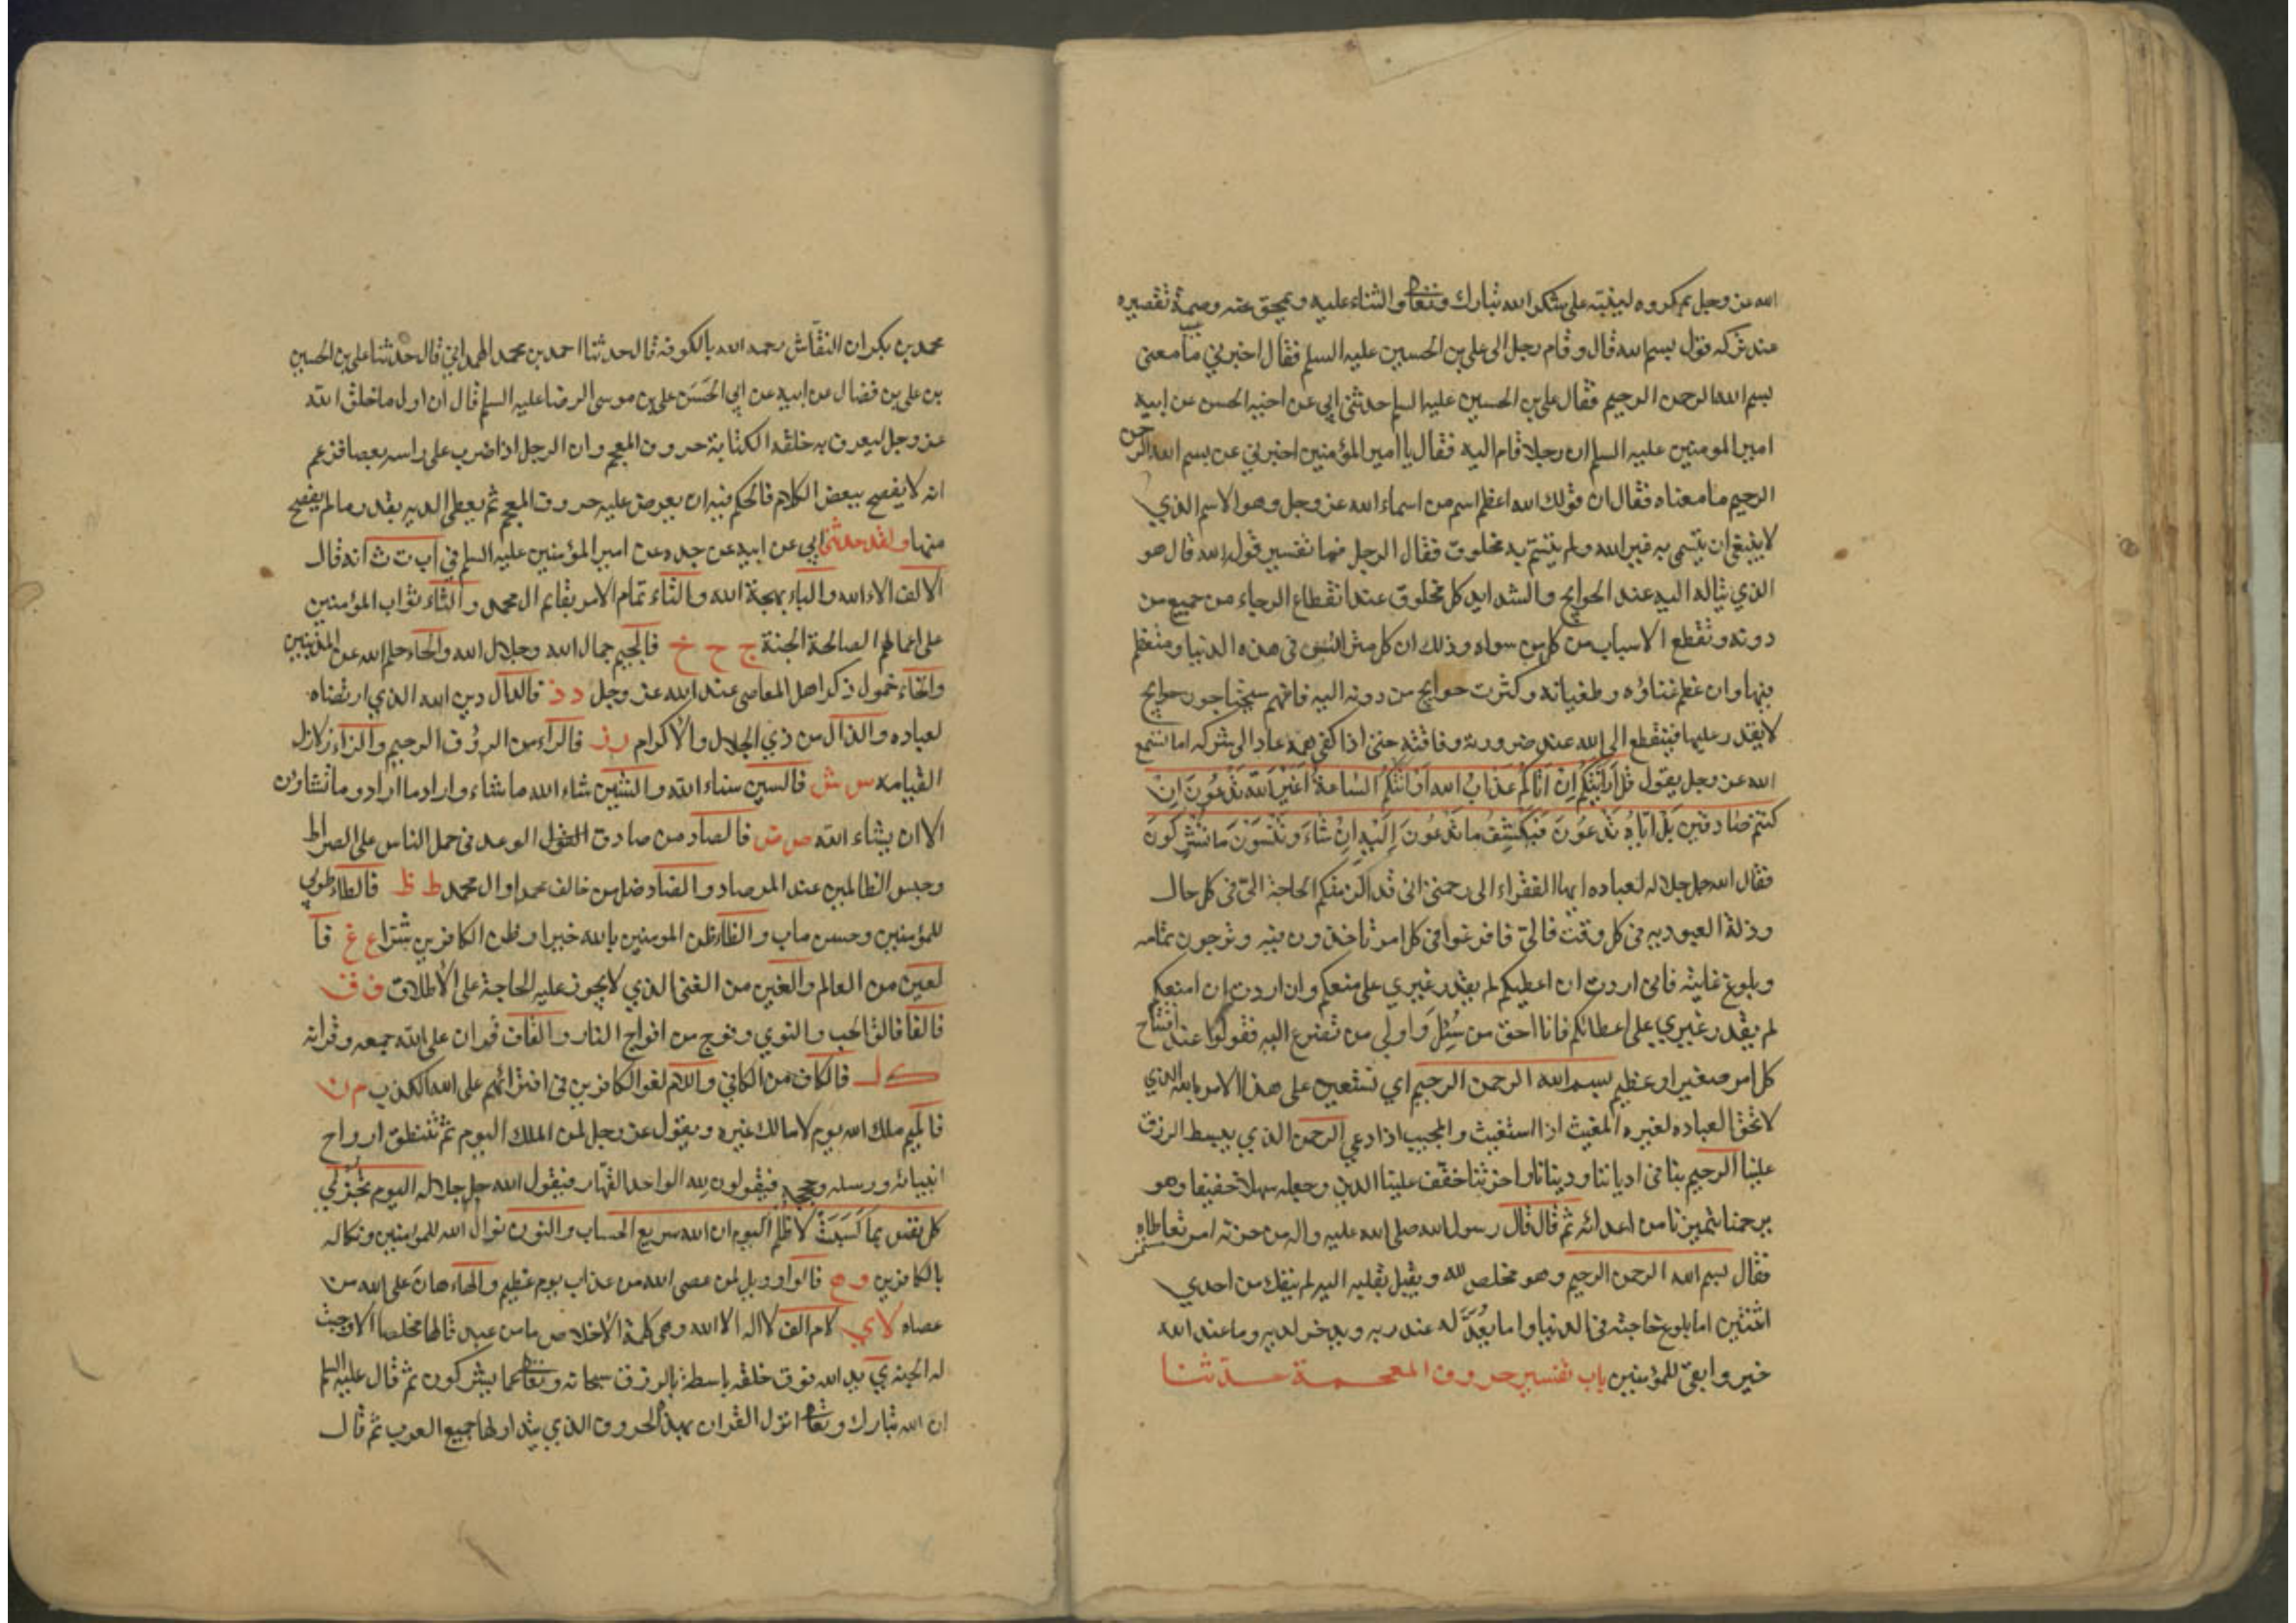 الله عز وجل بمكروه لينبهه على شكر الله تبارك وتعالى والثناء عليه ويمحق عنه وصمة تقصيره
عند تركه قول بسم الله قال وقام رجل الى علي بن الحسين عليه السلم فقال اخبرني ما معنى
بسم الله الرحمن الرحيم فقال علي بن الحسين عليه السلم حدثني ابي عن اخيه الحسن عن ابيه
امير المومنين عليه السلم ان رجلا قام اليه فقال يا امير المؤمنين اخبرني عن بسم الله الرحمن
الرحيم ما معناه فقال ان قولك الله اعظم اسم من اسماء الله عز وجل وهو الاسم الذي
لا ينبغي ان يتسمى به غير الله ولم يتسم به مخلوق فقال الرجل فما تفسير قول الله قال هو
الذي يتاله اليه عند الحوايج والشدايد كل مخلوق عند انقطاع الرجاء من جميع من
دونه وتقطع الاسباب من كل من سواه وذلك ان كل مترائس في هذه الدنيا ومتعظم
فيها وان عظم غناؤه وطغيانه وكثرت حوايج من دونه اليه فانهم سيحتاجون حوايج
لا يقدر عليها فينقطع الى الله عند ضرورته وفاقته حتى اذا كفي همه عاد الى شركه اما تسمع
الله عز وجل يقول قل أرأيتكم إن أتاكم عذاب الله أو أتتكم الساعة أغير الله تدعون إن
كنتم صادقين بل اياه تدعون فيكشف ما تدعون إليه إن شاء وتنسون ما تشركون
فقال الله جل جلاله لعباده ايها الفقراء الى رحمتي اني قد الزمتكم الحاجة الي في كل حال
وذلة العبودية في كل وقت فالي فافزعوا في كل امر تاخذون فيه وترجون تمامه
وبلوغ غايته فاني اردت ان اعطيكم لم يقدر غيري على منعكم وان اردت ان امنعكم
لم يقدر غيري على اعطائكم فانا احق من سئل واولى من تضرع اليه فقولوا عند افتتاح
كل امر صغير او عظيم بسم الله الرحمن الرحيم اي نستعين على هذا الامر بالله الذي
لا تحق العباده لغيره المغيث اذا استغيث والمجيب اذا دعي الرحمن الذي يبسط الرزق
علينا الرحيم بنا في ادياننا ودينانا واخرتنا خفف علينا الدين وجعله سهلا خفيفا وهو
يرحمنا بتميزنا من اعدائه ثم قال قال رسول الله صلى الله عليه واله من حزنه امر تعاطاه
فقال بسم الله الرحمن الرحيم وهو مخلص لله ويقبل بقلبه اليه لم ينفك من احدي
اثنتين اما بلوغ حاجته في الدنيا واما يعد له عند ربه ويدخر لديه وما عند الله
خير وابقى للمؤمنين باب تفسير حروف المعجمة حدثنا
محمد بن بكران النقاش رحمه الله بالكوفه قال حدثنا احمد بن محمد الهمداني قال حدثنا علي بن الحسين
بن علي بن فضال عن ابيه عن ابي الحسن علي بن موسى الرضا عليه السلم قال ان اول ما خلق الله
عز وجل ليعرف به خلقه الكتابة حروف المعجم وان الرجل اذا ضرب على راسه بعصا فزعم
انه لا يفصح ببعض الكلام فالحكم فيه ان يعرض عليه حروف المعجم ثم يعطى الديه بقدر ما لم يفصح
منها ولقد حدثني ابي عن ابيه عن جده عن امير المؤمنين عليه السلم في اب ت ث انه قال
الالف الاء الله والباء بهجة الله والتاء تمام الامر بقايم ال محمد والثاء ثواب المؤمنين
على اعمالهم الصالحة الجنة ج ح خ فالجيم جمال الله وجلال الله والحاء حلم الله عن المذنبين
والخاء خمول ذكر اهل المعاصي عند الله عز وجل د ذ فالدال دين الله الذي ارتضاه
لعباده والذال من ذي الجلال والاكرام ر ز فالراء من الرؤف الرحيم والزاء زلازل
القيامه س ش فالسين سناء الله والشين شاء الله ما شاء واراد ما اراد وما تشاؤن
الا ان يشاء الله ص ض فالصاد من صادق القول الوعد في حمل الناس على الصراط
وحبس الظالمين عند المرصاد والضاد ضل من خالف محمدا وال محمد ط ظ فالطاء طوبي
للمؤمنين وحسن ماب والظاء ظن المومنين بالله خيرا وظن الكافرين شرا ع غ فا
لعين من العالم والغين من الغنى الذي لا يجوز عليه الحاجة على الاطلاق ف ق
فالفا فالق الحب والنوي وفوج من افواج النار والقاف قران على الله جمعه وقرانه
ك ل فالكاف من الكافي واللام لغو الكافرين في افترائهم على الله الكذب م ن
فالميم ملك الله يوم لا مالك غيره ويقول عز وجل لمن الملك اليوم ثم تنطق ارواح
انبيائه ورسله وحججه فيقولون لله الواحد القهار فيقول الله جل جلاله اليوم تجزي
كل نفس بما كسبت لا ظلم اليوم ان الله سريع الحساب والنون نوال الله للمؤمنين ونكاله
بالكافرين و ه فالواو ويل لمن عصى الله من عذاب يوم عظيم والهاء هان على الله من
عصاه لا ي لام الف لا اله الا الله وهي كلمة الاخلاص ما من عبد قالها مخلصا الا وجبت
له الجنة ي يد الله فوق خلقه باسطة بالرزق سبحانه وتعالى عما يشركون ثم قال عليه السلم
ان الله تبارك وتعالى انزل القران بهذه الحروف الذي يتداولها جميع العرب ثم قال